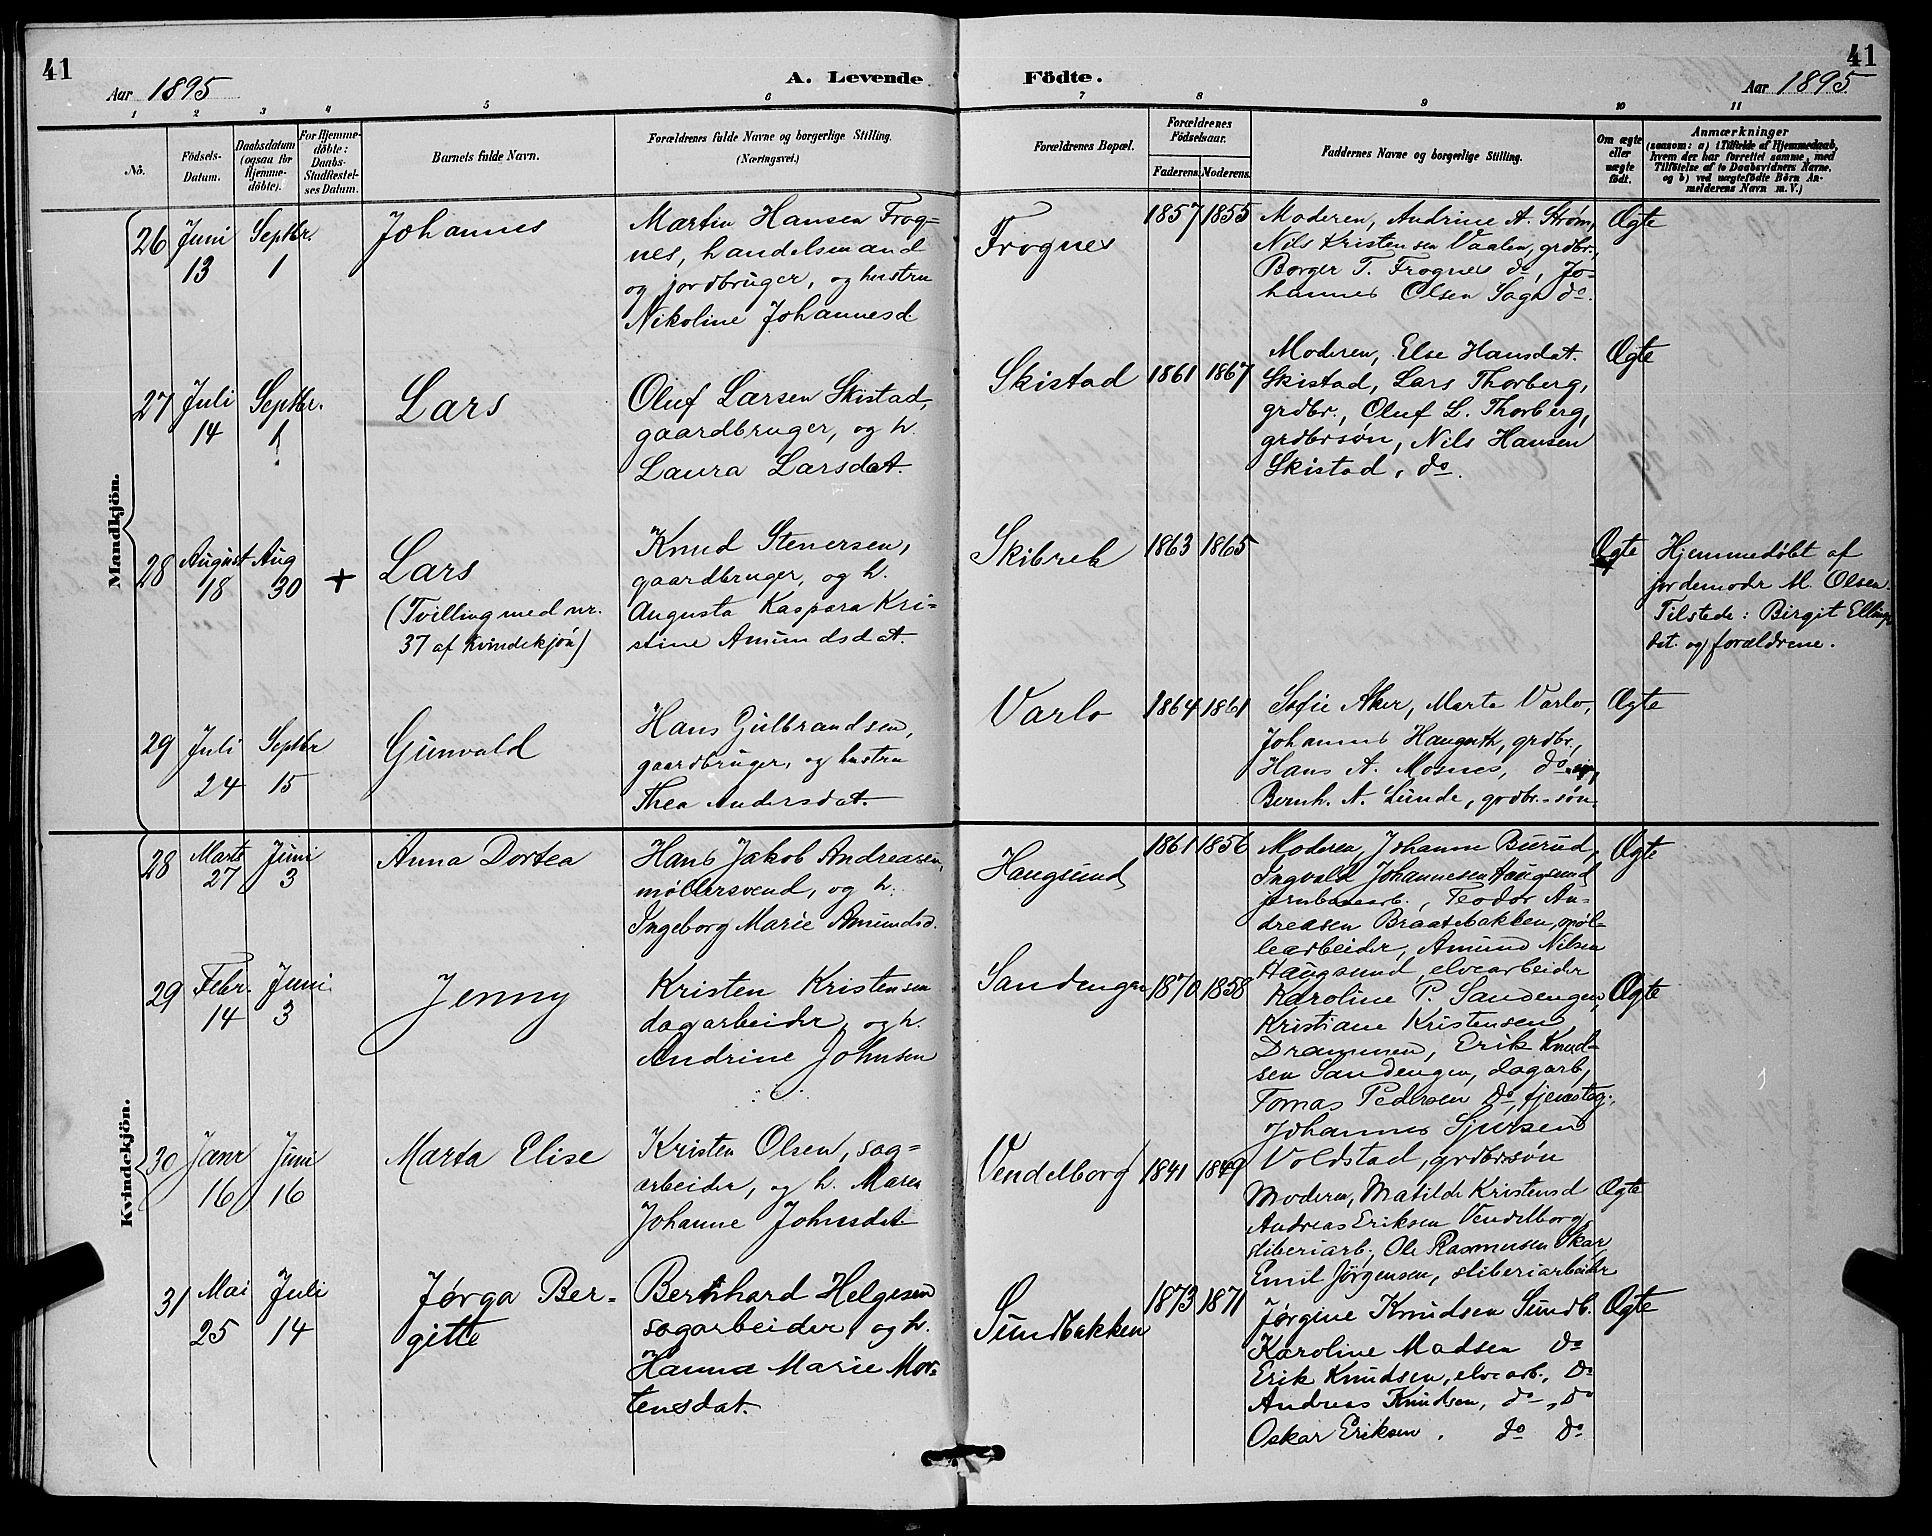 41
Aar 1895
A. Levende
Födte.
41
Aar 1895
1 2 3 4 5 6 7 8 9 10 11
No.
Födsels-
Datum.
Daabsdatum
(ogsaa for
Hjemme-
döbte).
For Hjemme-
döbte:
Daabs-
Stadfæstel-
ses Datum.
Barnets fulde Navn.
Forældrenes fulde Navne og borgerlige Stilling.
(Næringsvei.)
Forældrenes Bopæl.
Forældrenes
Födselsaar.
Faderens. Moderens.
Faddernes Navne og borgerlige Stilling.
Om ægte
eller
uægte
født.
Anmærkninger
(saasom: a) i Tilfælde af Hjemmedaab,
hvem der har forrettet samme, med
Tilføielse af to Daabsvidners Navne.
og b) ved uægtefödte Börn An-
melderens Navn m. V.)
Mandkjön.
26
Juni
13
Septbr.
1
Johannes
Martin Hansen Frog=
nes, handelsmand
og jordbruger, og hustru
Nikoline Johannesd.
Frognes
1857 1855
Moderen, Andrine A. Strøm,
Nils Kristensen Vaalen, grdbr.,
Borger T. Frognes do, Jo-
hannes Olsen Sagh do.
Ægte
27
Juli
14
Septbr.
1
Lars
Oluf Larsen Skistad,
gaardbruger, og h.
Laura Larsdat.
Skistad
1861 1867
Moderen, Else Hansdat.
Skistad, Lars Thorberg,
grdbr., Oluf L. Thorberg,
grdbrsøn, Nils Hansen
Skistad, do.
Ægte
28
August
18
Aug
30
+
Lars
(Tvilling med nr.
37 af Kvindekjøn)
Knud Stenersen,
gaardbruger, og h.
Augusta Kaspara Kri-
stine Amundsdat.
Skibrek
1863 1865
Ægte
Hjemmedøbt af
jordemodr M. Olsen.
Tilstede: Birgit Ellings
dat. og forældrene.
29
Juli
24
Septbr
15
Gunvald
Hans Gulbrandsen,
gaardbruger, og hustru
Thea Andersdat.
Varlo
1864 1861
Sofie Aker, Marta Varlo,
Johannes Haugerth, grdbr.,
Hans A. Mosnes, do og
Bernh. A. Lunde, grdbr.-søn.
Ægte
Kvindekjön.
28
Marts
27
Juni
3
Anna Dortea
Hans Jakob Andreasen,
møllersvend, og h.
Ingeborg Marie Amundsd.
Haugsund
1861 1856
Moderen, Johanne Burud,
Ingvald Johannesen Haugsund
jernbanearb., Teodor An-
dreasen Braatebakken, møl-
learbeider, Amund Nilsen
Haugsund, elvearbeider
Ægte
29
Febr.
14
Juni
3
Jenny
Kristen Kristensen
dagarbeider, og h.
Andrine Johnsen
Sandengen
1870 1858
Karoline P. Sandengen,
Kristiane Kristensen
Drammen, Erik Knud-
sen Sandengen, dagarb,
Tomas Pedersen do, tjenestegj.,
Johannes Sjursen
Voldstad, grdbrsøn
Ægte
30
Janr
16
Juni
16
Marta Elise
Kristen Olsen, sag=
arbeider, og h. Maren
Johanne Johnsdat.
Vendelborg
1841 1849
Moderen, Matilde Kristensd
Andreas Eriksen Vendelborg,
sliberiarb., Ole Rasmussen Skar,
Emil Jørgensen, sliberiarbeider
Ægte
31
Mai
25
Juli
14
Jørga Ber-
gitte
Bernhard Helgesen
sagarbeider, og h.
Hanna Marie Mor-
tensdat.
Sundbakken
1873 1871
Jørgine Knudsen Sundb.
Karoline Madsen do
Erik Knudsen, elvearb., do
Andreas Knudsen, do, do
Oskar Eriksen. do do
Ægte